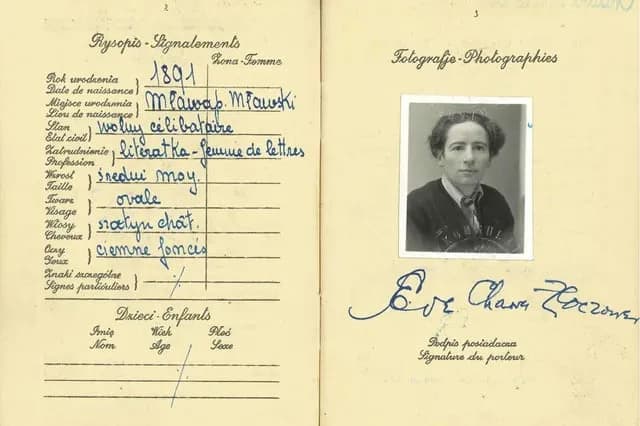 2
Rysopis - Signalements
Żona - Femme
Rok urodzenia
Date de naissance
1891
Miejsce urodzenia
Lieu de naissance
Mława p. Mławski
Stan
Etat civil
wolny célibataire
Zatrudnienie
Profession
literatka - femme de lettres
Wzrost
Taille
średni moy.
Twarz
Visage
ovale
Włosy
Cheveux
szatyn chât.
Oczy
Yeux
ciemne foncés
Znaki szczególne
Signes particuliers
Dzieci - Enfants
Imię Wiek Płeć
Nom Age Sexe
3
Fotografje - Photographies
Eve Chawa
Podpis posiadacza
Signature du porteur